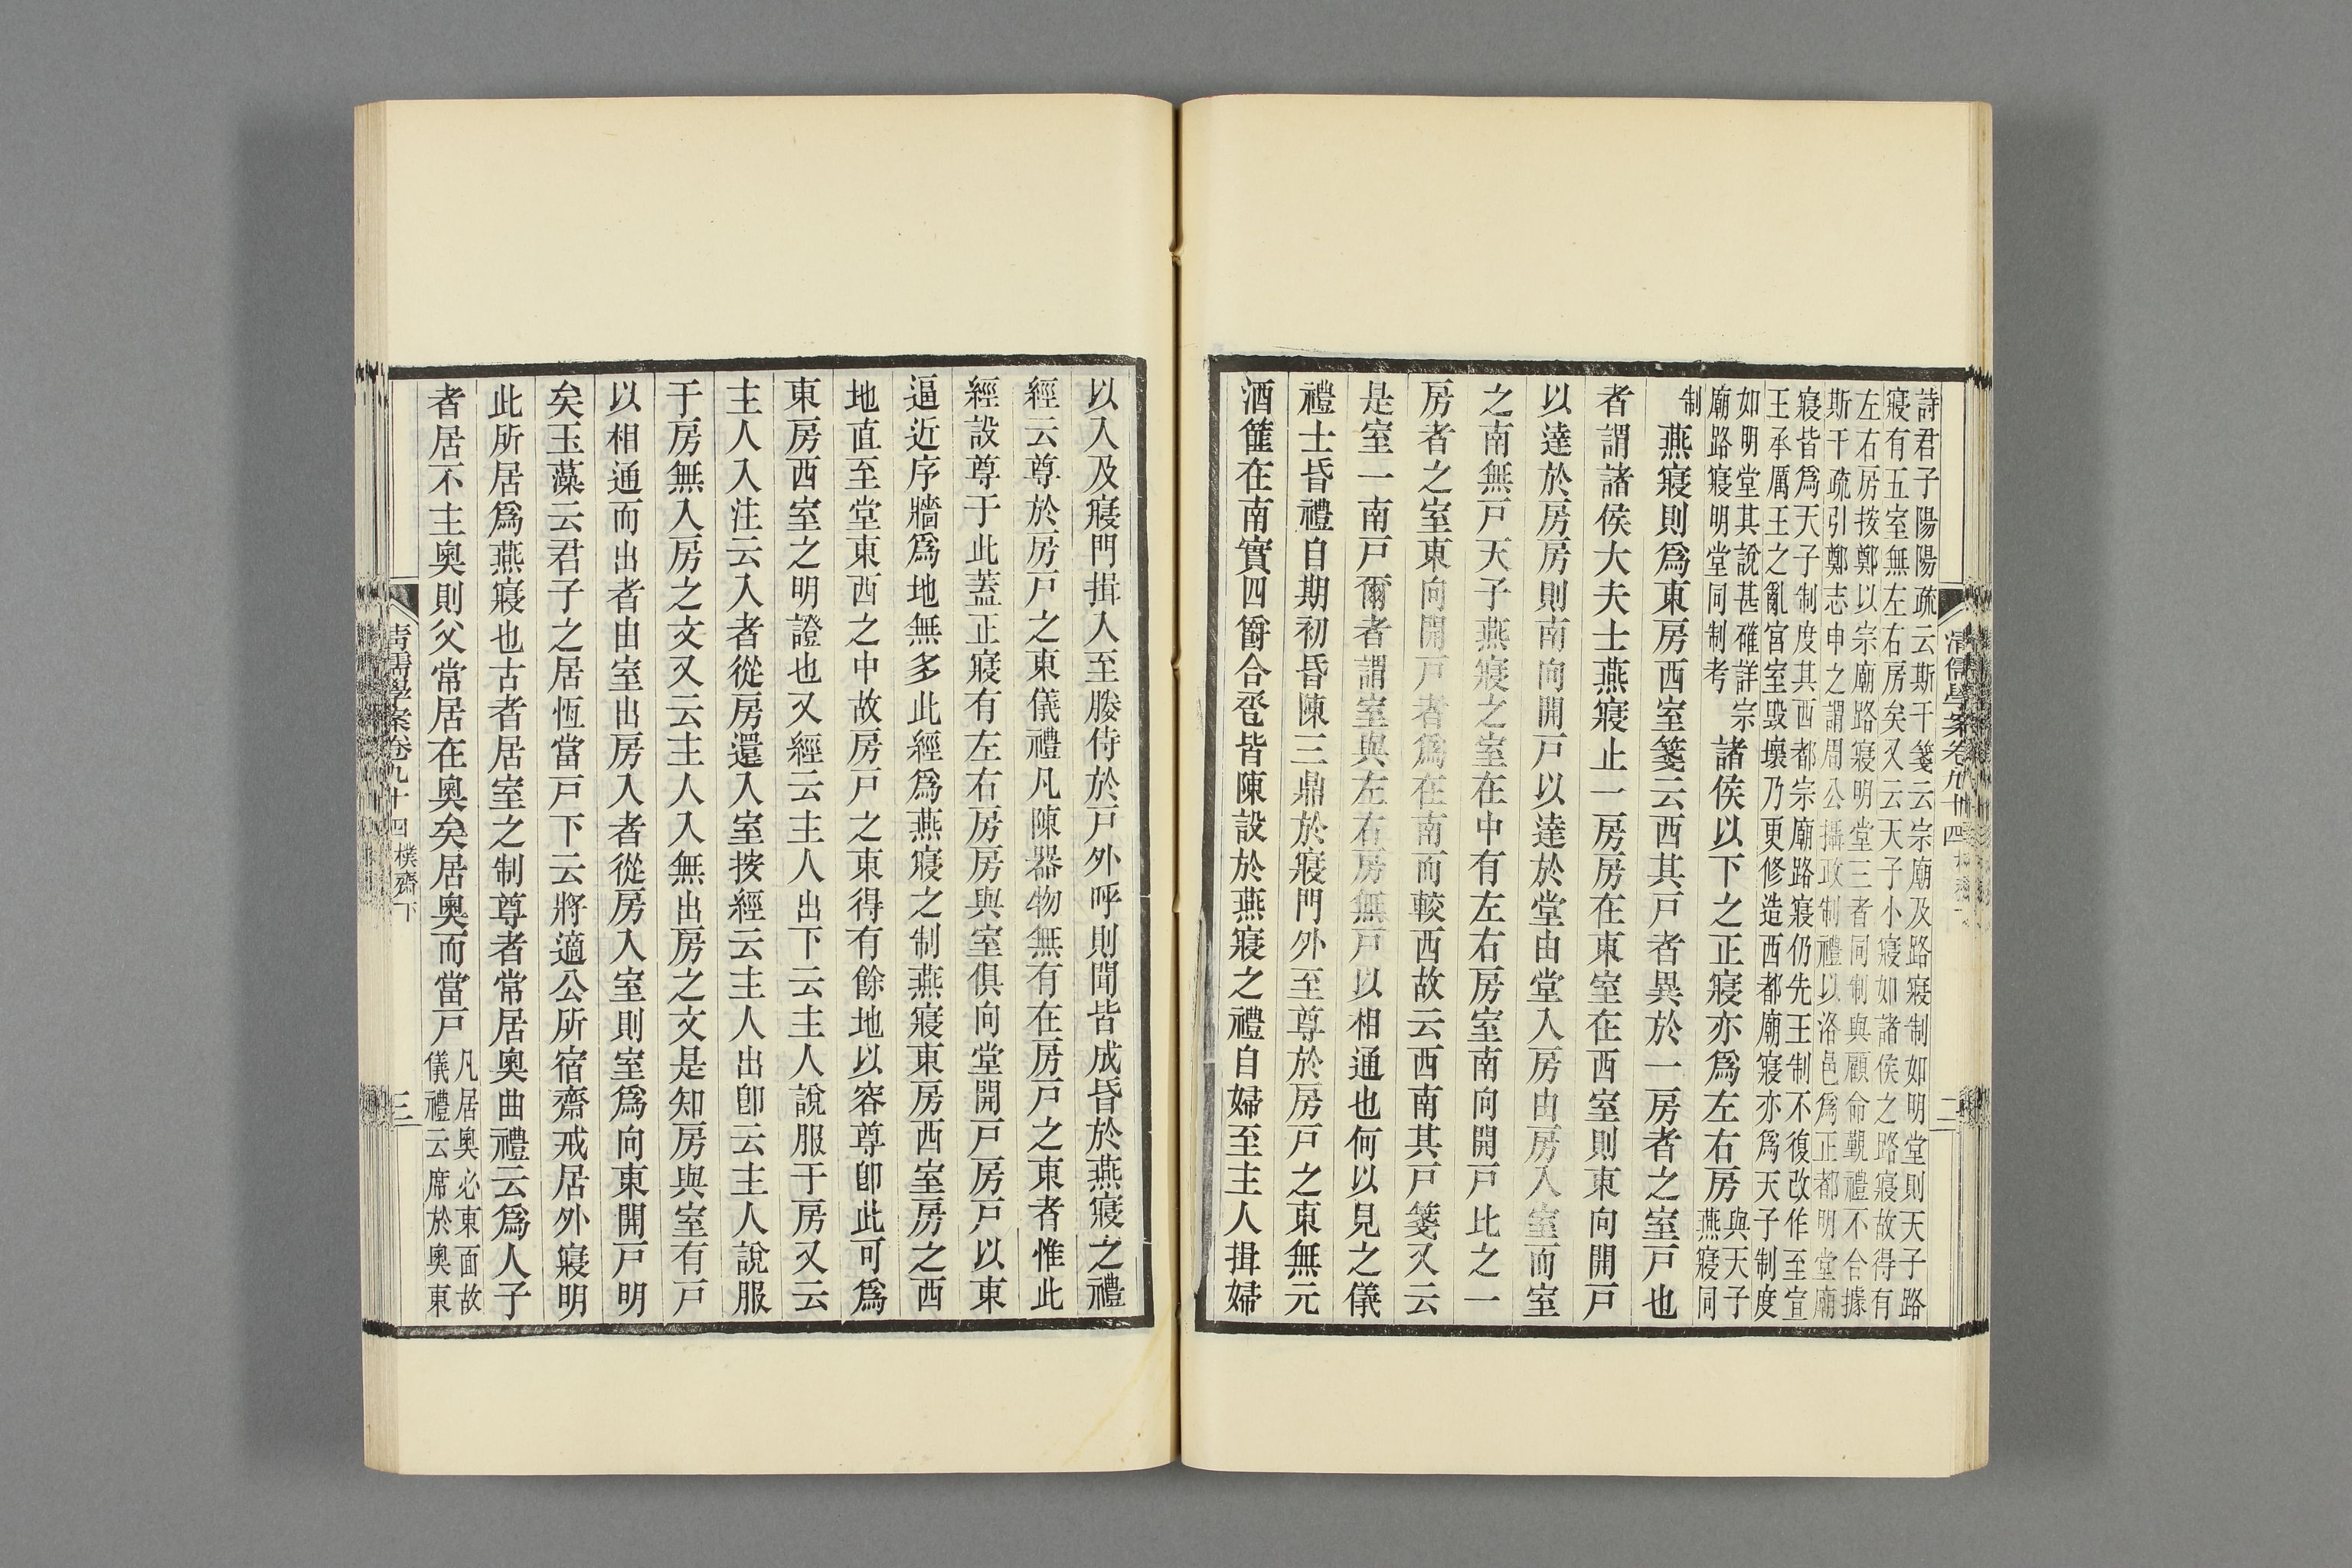 清儒學案卷九十四 二
詩君子陽陽疏云斯干箋云宗廟及路寢制如明堂則天子路
寢有五室無左右房矣又云天子小寢如諸侯之路寢故得有
左右房按鄭以宗廟路寢明堂三者同制與顧命覲禮不合據
斯干疏引鄭志申之謂周公攝政制禮以洛邑爲正都明堂廟
寢皆爲天子制度其西都宗廟路寢仍先王制不復改作至宣
王承厲王之亂宮室毀壞乃更修造西都廟寢亦爲天子制度
如明堂其說甚確詳宗
廟路寢明堂同制考
諸侯以下之正寢亦爲左右房
與天子
燕寢同
制
燕寢則爲東房西室箋云西其戶者異於一房者之室戶也
者謂諸侯大夫士燕寢止一房房在東室在西室則東向開戶
以達於房房則南向開戶以達於堂由堂入房由房入室而室
之南無戶天子燕寢之室在中有左右房室南向開戶比之一
房者之室東向開戶者爲在南而較西故云西南其戶箋又云
是室一南戶爾者謂室與左右房無戶以相通也何以見之儀
禮士昏禮自期初昏陳三鼎於寢門外至尊於房戶之東無元
酒篚在南實四爵合卺皆陳設於燕寢之禮自婦至主人揖婦
以入及寢門揖入至媵侍於戶外呼則聞皆成昏於燕寢之禮
經云尊於房戶之東儀禮凡陳器物無有在房戶之東者惟此
經設尊于此蓋正寢有左右房房與室俱向堂開戶房戶以東
逼近序牆爲地無多此經爲燕寢之制燕寢東房西室房之西
地直至堂東西之中故房戶之東得有餘地以容尊卽此可爲
東房西室之明證也又經云主人出下云主人說服于房又云
主人入注云入者從房還入室按經云主人出卽云主人說服
于房無入房之文又云主人入無出房之文是知房與室有戶
以相通而出者由室出房入者從房入室則室爲向東開戶明
矣玉藻云君子之居恆當戶下云將適公所宿齋戒居外寢明
此所居爲燕寢也古者居室之制尊者常居奧曲禮云爲人子
者居不主奧則父常居在奧矣居奧而當戶
凡居奧必東面故
儀禮云席於奧東
清儒學案卷九十四 樸齋下 三